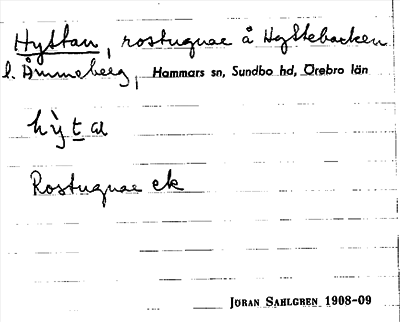 Hyttan, rostugnar å Hyttebacken
l. Åmmeberg, Hammars sn, Sundbo hd, Örebro län
hỳta
Rostugnar etc
JÖRAN SAHLGREN 1908-09